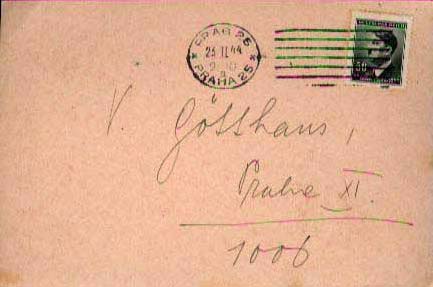 PRAG 25
23 II 44
PRAHA 25
V. Gotthans,
Prahe XI.
1006